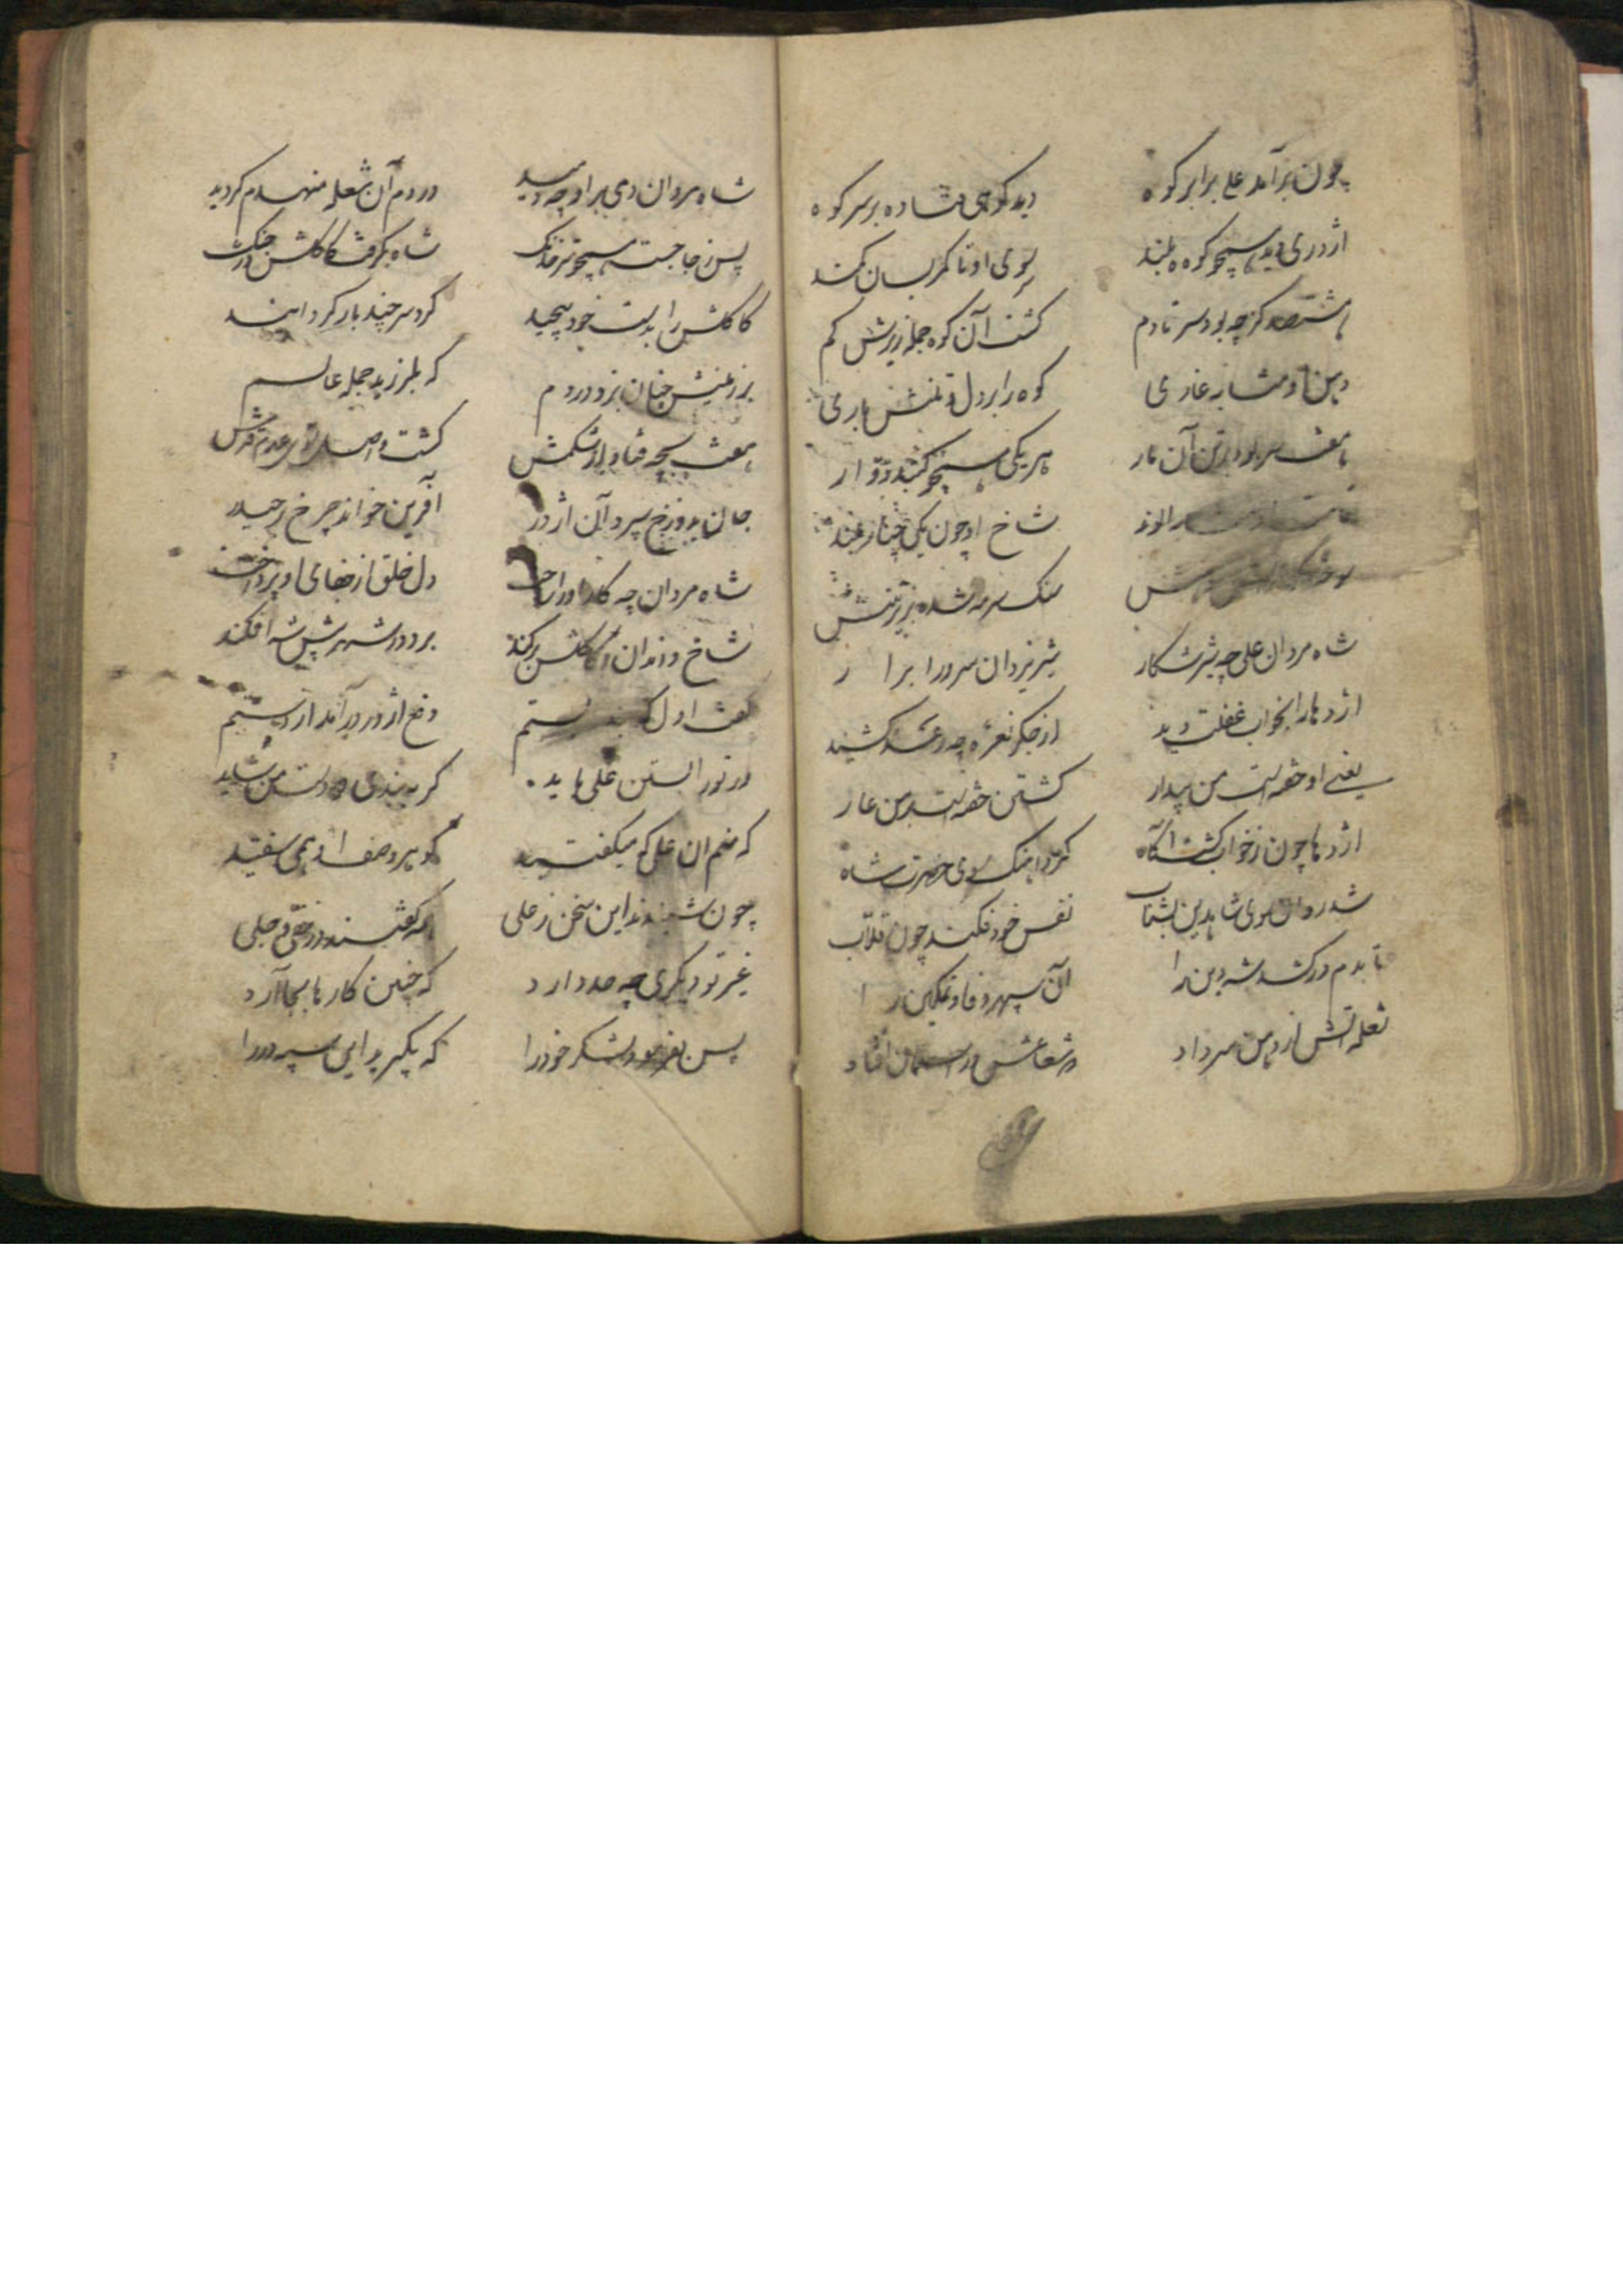 چون برآمد علی برابر کوه دید کوهی فتاده بر سر کوه
اژدری دید همچو کوه بلند موی او تا کمر بسان کمند
هشتصد گز چه بود سر تا دم کشت آن کوه جمله زیرش کم
دهن او مشابه غاری کوه را بر دل از تنش باری
هفت سر بود در تن آن مار هر یکی همچو گنبد دوار
شاخ او چون یکی چنار بلند
سنک سرمه شده بزیر تنش
شاه مردان علی چه شیر شکار شیر یزدان سرور ابرار
اژدها را بخواب غفلت دید از جکر نعره چه رعد کشید
یعنی او خفته است من بیدار کشتن خفته است بر من عار
اژدها چون ز خواب کشت آگاه کرد آهنک سوی حضرت شاه
شد روان سوی شاه دین بشتاب نفس خود فکند چون قلاب
تا بدم در کشد شه دین را آن سپهر وفا و تمکین را
شعله آتش از دهن سر داد شعاعش در آسمان افتاد
شاه مردان دمی براو چه دمید در دم آن شعله منهدم کردید
پس ز جا جست همچو تیر خدنک شاه بکرفت کاکلش در چنک
کاکلش را بدست خود پیچید کرد سر چند بار کردانید
بر زمینش چنان بزد در دم که بلرزید جمله عالم
هفت بچه فتاد از شکمش کشت واصل سوی عدم
جان بدوزخ سپرد آن اژدر آفرین خواند چرخ بر حیدر
شاه مردان چه کار او را ساخت دل خلق از جفای او پرداخت
شاخ و دندان و کاکلش برکند برد در شهر پیش شه افکند
گفت اول که بند بستم دفع اژدر برآمد از دستم
در تو را بستن علی باید کر ببندی دو دست من شاید
که منم آن علی که میکفتید کوهر وصف او همی سفتید
چون شنیدند این سخن ز علی همه کفتند در خفی و جلی
غیر تو دیکری چه حد دارد که چنین کارها بجا آرد
پس بفرمود لشکر خود را که بکیرید این سپه در را